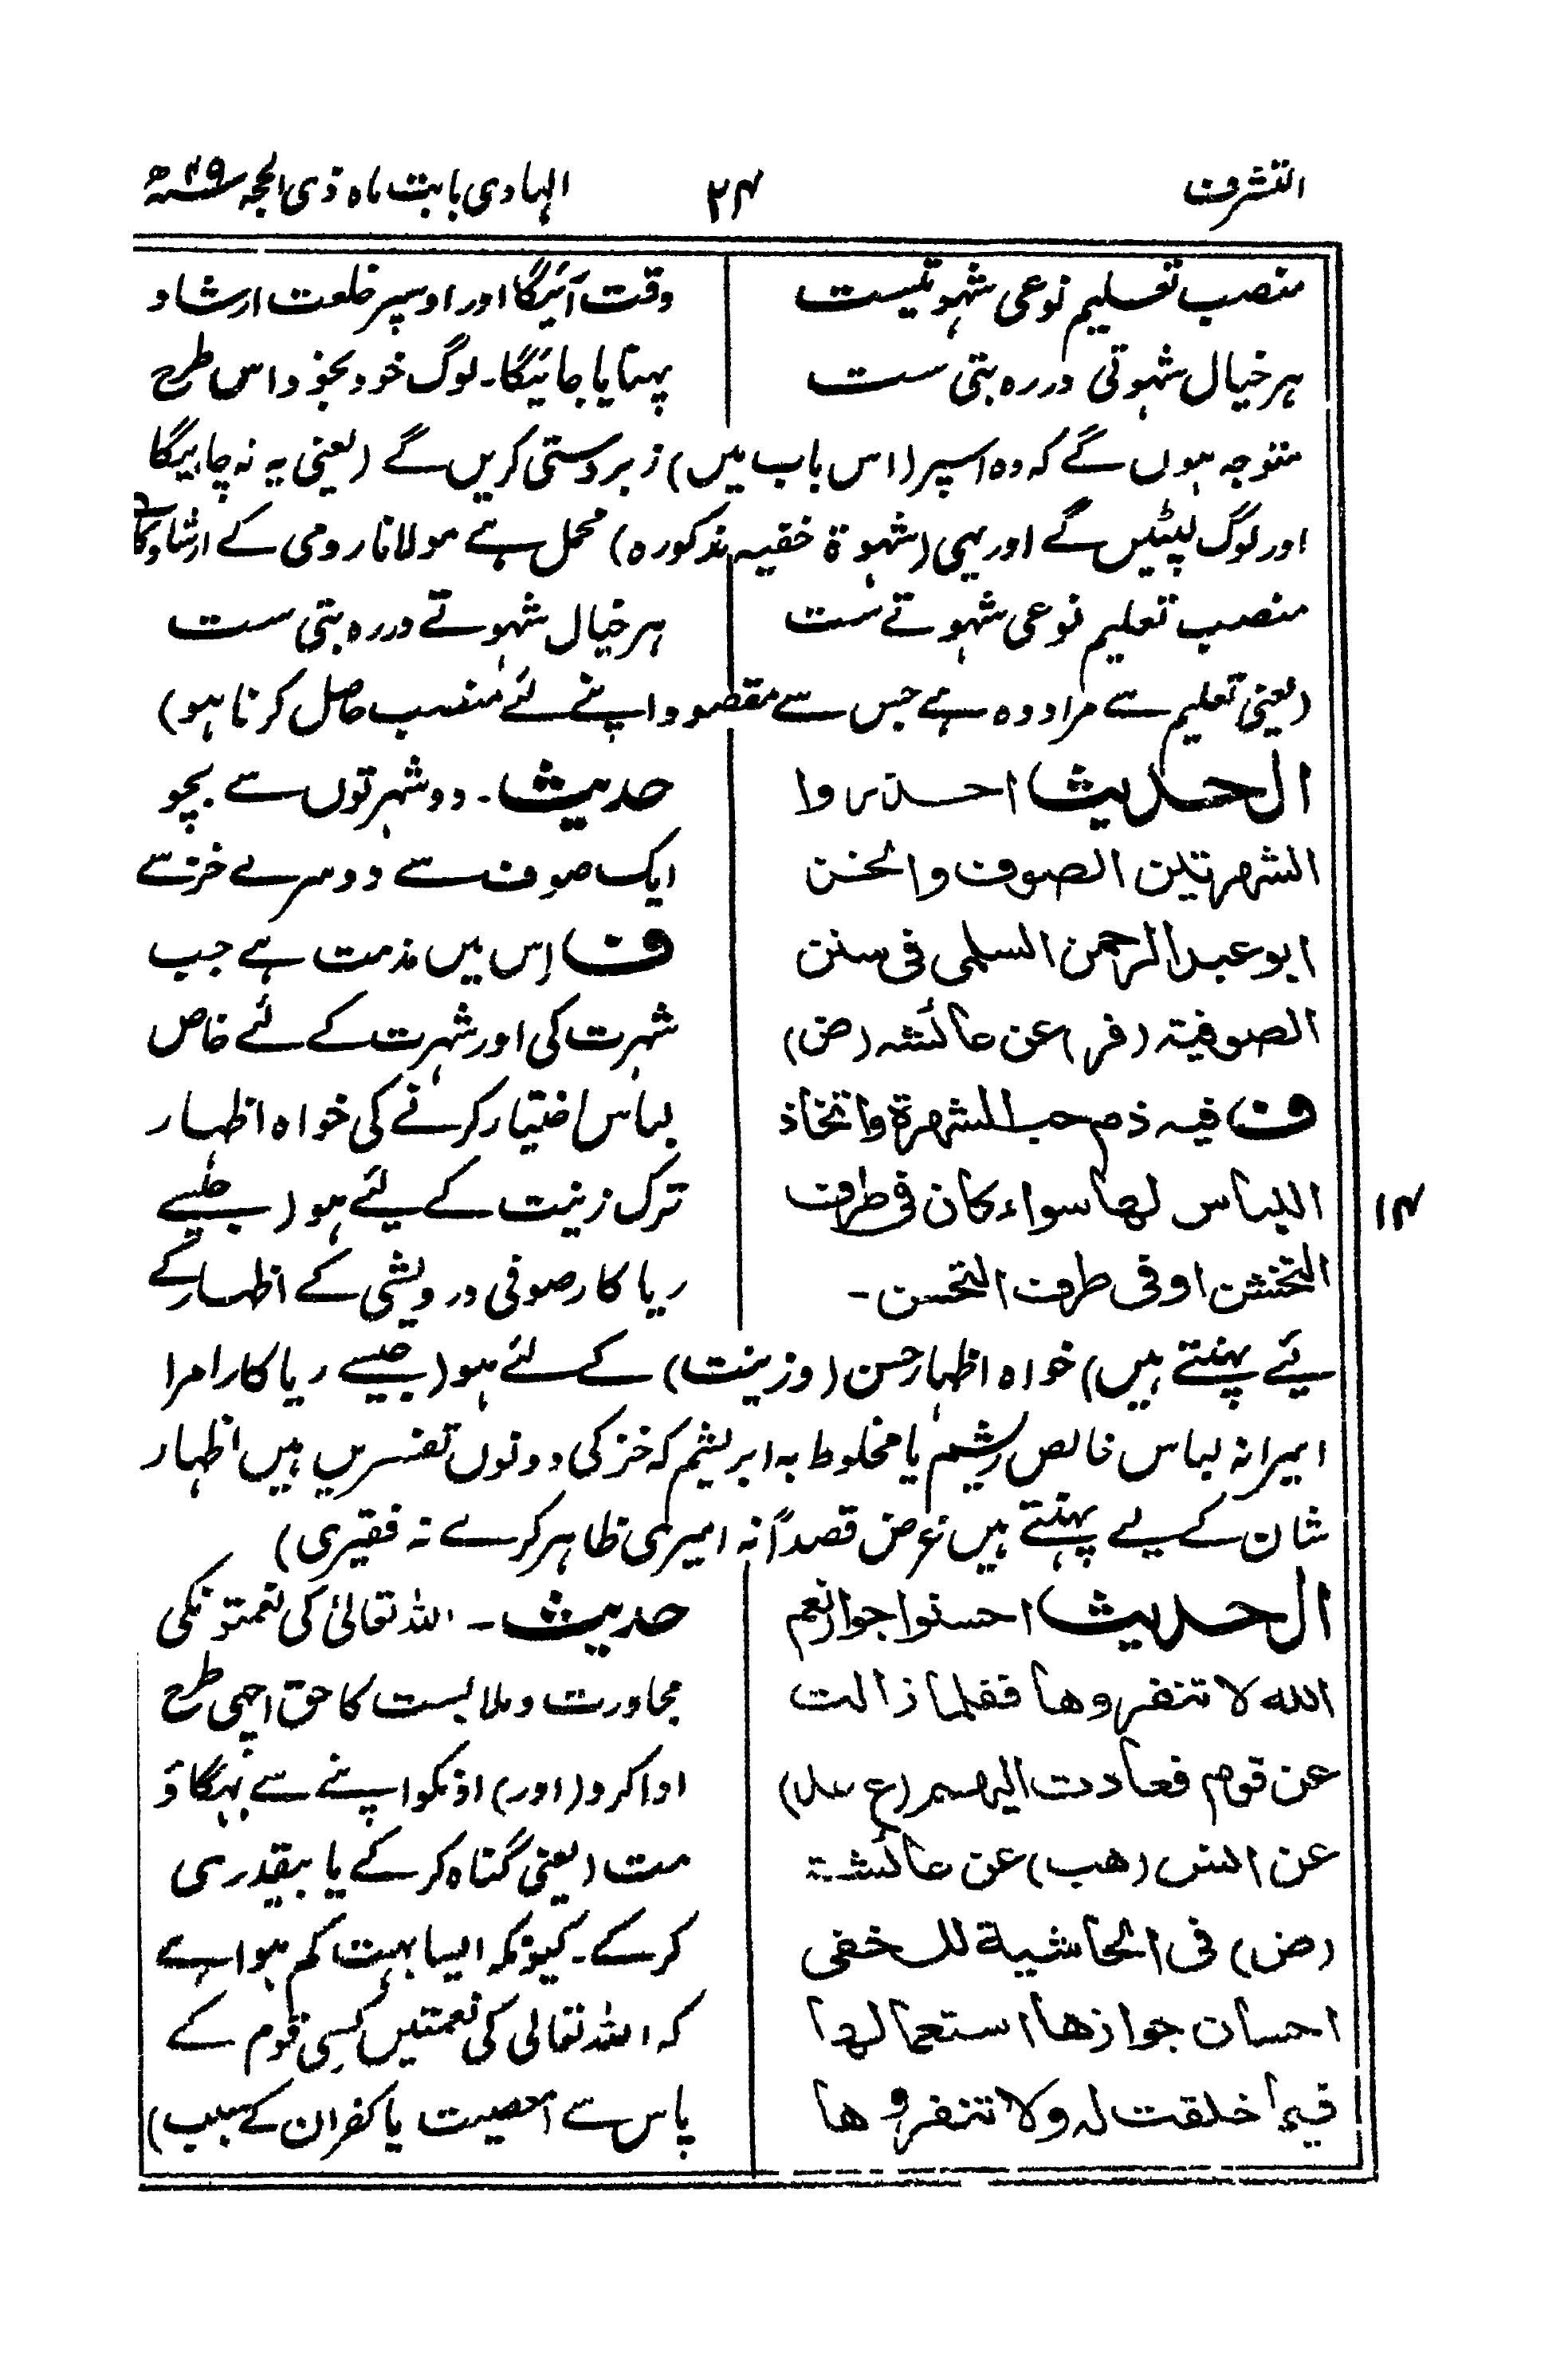 التشرف
۲۴
الہادی بابت ماہ ذی الحجہ ۴۹ھ
منصب تعلیم نوعی شہوتیست
ہر خیال شہوتی در رہ بتی ست
وقت آئیگا اور اوسپر خلعت ارشاد
پہنایا جائیگا۔ لوگ خود بخود اس طرح
متوجہ ہوں گے کہ وہ اسپر (اس باب میں) زبردستی کریں گے (یعنی یہ نہ چاہیگا
اور لوگ لپٹیں گے اور یہی (شہوۃ خفیہ مذکورہ) محمل ہے مولانا رومی کے ارشاد کا
منصب تعلیم نوعی شہوتے ست
ہر خیال شہوتے در رہ بتی ست
(یعنی تعلیم سے مراد وہ ہے جس سے مقصود اپنے لئے منصب حاصل کرنا ہو)
الحدیث احذروا
الشھرتین الصوف والخز
ابو عبد الرحمن السلمی فی سنن
الصوفیۃ (فر) عن عائشہ (ض)
ف فیہ ذم حب الشھرۃ واتخاذ
اللباس لھا سواء کان فی طرف
التخشن او فی طرف التحسن -
۱۴
حدیث۔ دو شہرتوں سے بچو
ایک صوف سے دوسرے خز سے
ف اس میں مذمت ہے حب
شہرت کی اور شہرت کے لئے خاص
لباس اختیار کرنے کی خواہ اظہار
ترک زینت کے لیئے ہو (جیسے
ریاکار صوفی درویشی کے اظہار کے
لیئے پہنتے ہیں) خواہ اظہار حسن (وزینت) کے لئے ہو (جیسے ریاکار امرا
امیرانہ لباس خالص ریشم یا مخلوط بہ ابریشم کہ خز کی دونوں تفسریں ہیں اظہار
شان کے لیے پہنتے ہیں غرض قصداً نہ امیری ظاہر کرے نہ فقیری)
الحدیث احسنوا جوار نعم
اللہ لا تنفروھا فقلما زالت
عن قوم فعادت الیھم (ع عد)
عن انس (ھب) عن عائشۃ
(ض) فی الحاشیۃ للحفی
احسان جوارھا استعمالھا
فیما خلقت لہ ولا تنفروھا
حدیث ۔ اللہ تعالیٰ کی نعمتونکی
مجاورت وملابست کا حق اچھی طرح
ادا کرو (اور) اونکو اپنے سے بہگاؤ
مت (یعنی گناہ کرکے یا بیقدری
کرکے۔ کیونکہ ایسا بہت کم ہوا ہے
کہ اللہ تعالی کی نعمتیں کسی قوم کے
پاس سے (معصیت یا کفران کے سبب)